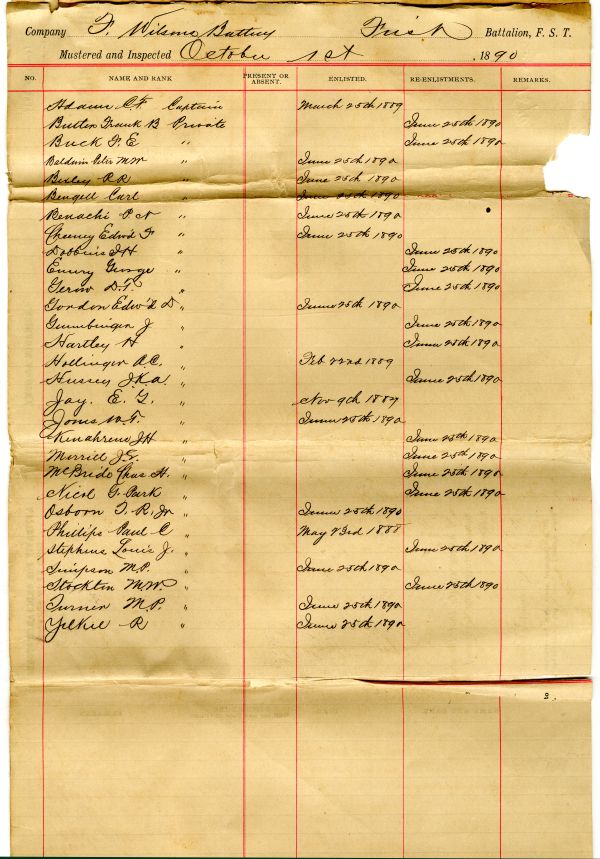 Company F. Wilson Battery First Battalion, F. S. T.
Mustered and Inspected October 1st, 1890
NO. NAME AND RANK PRESENT OR ABSENT. ENLISTED. RE-ENLISTMENTS. REMARKS.
Adams C.F. Captain March 25th 1889
Butler Frank B Private June 25th 1890
Buck F. E " June 25th 1890
Baldwin Peter M.W. " June 25th 1890
Bixley R R " June 25th 1890
Bengell Carl " June 25th 1890
Benachi P N " June 25th 1890
Cheeney Edwd F " June 25th 1890
Dobbins J H " June 25th 1890
Emery George " June 25th 1890
Gerow D.T. " June 25th 1890
Gordon Edw'd D " June 25th 1890
Gumbinger J " June 25th 1890
Hartley H " June 25th 1890
Hollinger A.C. " Feb 22nd 1889
Hussey J.K.a. " June 25th 1890
Jay. E. G. " Nov 9th 1887
Jones W.F. " June 25th 1890
J H " June 25th 1890
Merrill J.E. " June 25th 1890
McBride Chas H. " June 25th 1890
Nicol G. Park " June 25th 1890
Osborn T. R. Jr " June 25th 1890
Phillips Paul C " May 23rd 1888
Stephens Louis J. " June 25th 1890
Simpson M.P. " June 25th 1890
Stockton M.W. " June 25th 1890
Turner M.P. " June 25th 1890
Yelkil R " June 25th 1890
3.